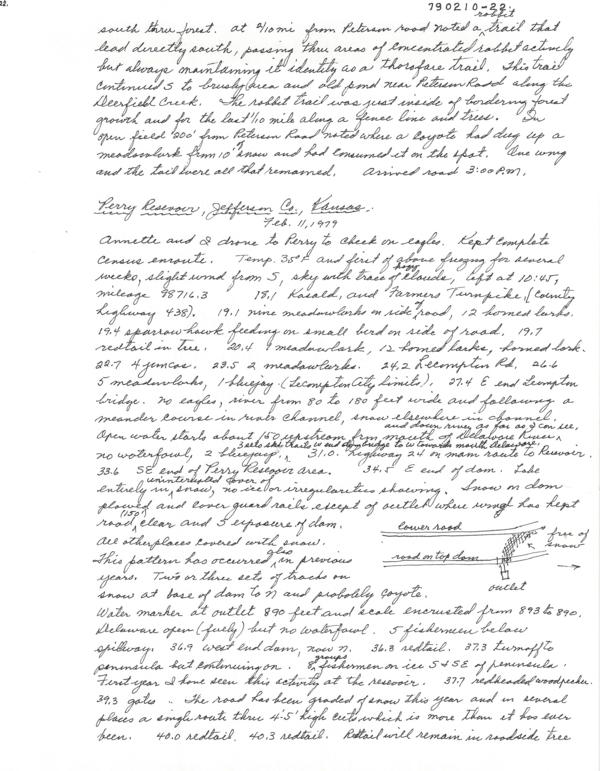 22.
790210-22
south thru forest. at 2/10 mi from Peterson road noted a rabbit trail that
lead directly south, passing thru areas of concentrated rabbit activity
but always maintaining it identity as a thorofare trail. This trail
continued S to brushy area and old pond near Peterson Road along the
Deerfield Creek. The rabbit trail was just inside of bordering forest
growth and for the last 1/10 mile along a fence line and trees. In
open field 200' from Peterson Road noted where a coyote had dug up a
meadowlark from 10" snow and had consumed it on the spot. One wing
and the tail were all that remained. Arrived road 3:00 P.M.
Perry Resevoir, Jefferson Co., Kansas.
Feb. 11, 1979
Annette and I drove to Perry to check on eagles. Kept complete
census enroute. Temp. 35°F and first of above freezing for several
weeks, slight wind from S, sky with trace of hazy clouds, left at 10:45,
mileage 98716.3 18.1 Kasold, and Farmers Turnpike, (County
highway 438). 19.1 nine meadowlarks on side of road, 12 horned larks.
19.4 sparrow hawk feeding on small bird on side of road. 19.7
redtail in tree. 20.4 1 meadowlark, 12 horned larks, horned lark.
22.7 4 juncos. 23.5 2 meadowlarks. 24.2 Lecompton Rd. 26.6
5 meadowlarks, 1 bluejay (Lecompton City limits). 27.4 E end Lecompton
bridge. no eagles, river from 80 to 180 feet wide and following a
meander course in river channel, snow elsewhere in channel.
Open water starts about 150 upstream from mouth of Delaware River and down river as far as I can see.
no waterfowl, 2 bluejays. 31.0. highway 24 on main route to Resevoir.
33.6 SE end of Perry Resevoir area. 34.5 E end of dam. Lake
entirely in uninterrupted cover of snow, no ice or irregularities showing. Snow on dam
plowed and cover guard rails except of outlet where wind has kept
road (150') clear and S exposure of dam.
All other places covered with snow.
This pattern has occurred also in previous
years. Two or three sets of tracks on
snow at base of dam to N and probably coyote.
lower road
road on top dam
free of
snow
outlet
Water marker at outlet 890 feet and scale encrusted from 893 to 890.
Delaware open (fully) but no waterfowl. 5 fishermen below
spillway. 36.9 west end dam, now N. 36.3 redtail. 37.3 turnoff to
peninsula but continuing on. 8 groups fishermen on ice S & SE of peninsula.
First year I have seen this activity at the resevoir. 37.7 redheaded woodpecker.
39.3 gates .. The road has been graded of snow this year and in several
places a single route thru 4'-5' high cuts which is more than it has ever
been. 40.0 redtail. 40.3 redtail. Redtail will remain in roadside tree